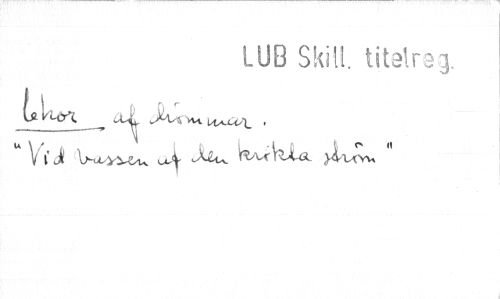 LUB Skill. titelreg.
Ekor af drömmar.
"Vid vassen af den krökta ström"